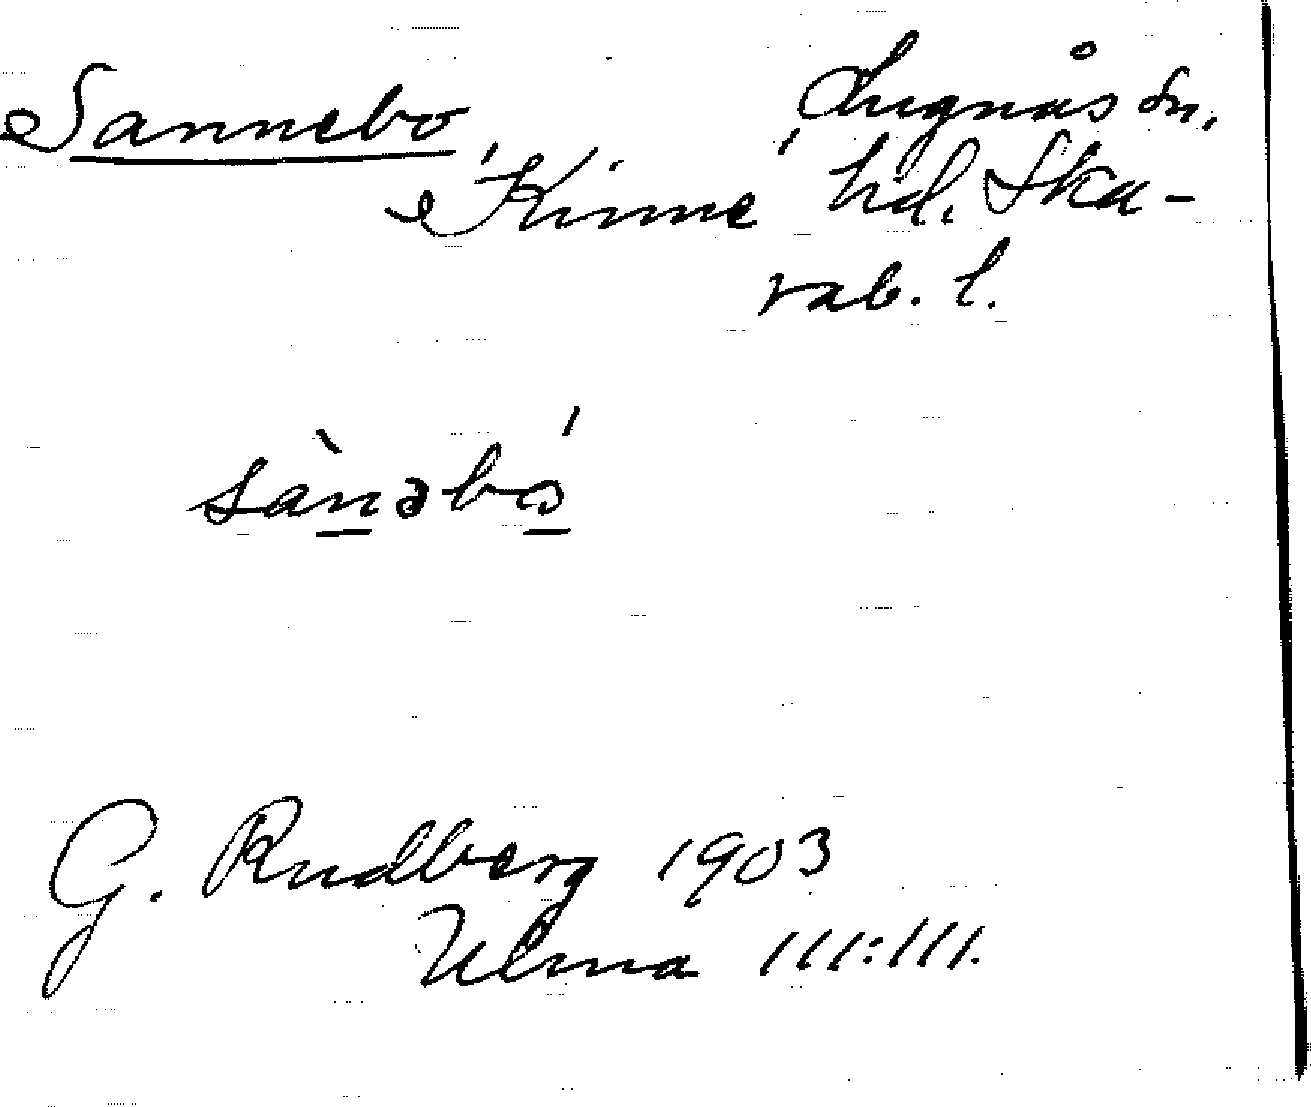 Sannebo, Lugnås sn,
'Kinne' hd. Ska-
rab. l.
sànəbó
G. Rudberg 1903
Ulma 111:111.